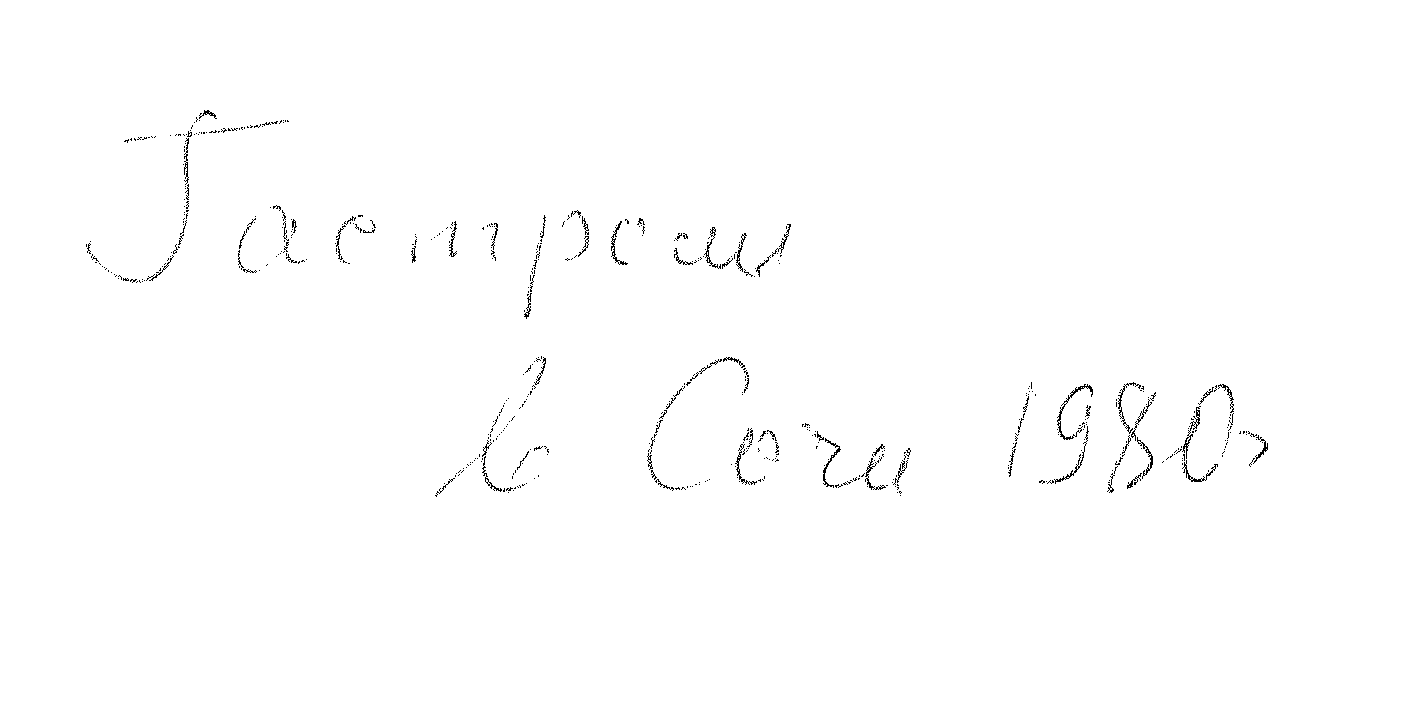 Гастроли
в Сочи 1980г